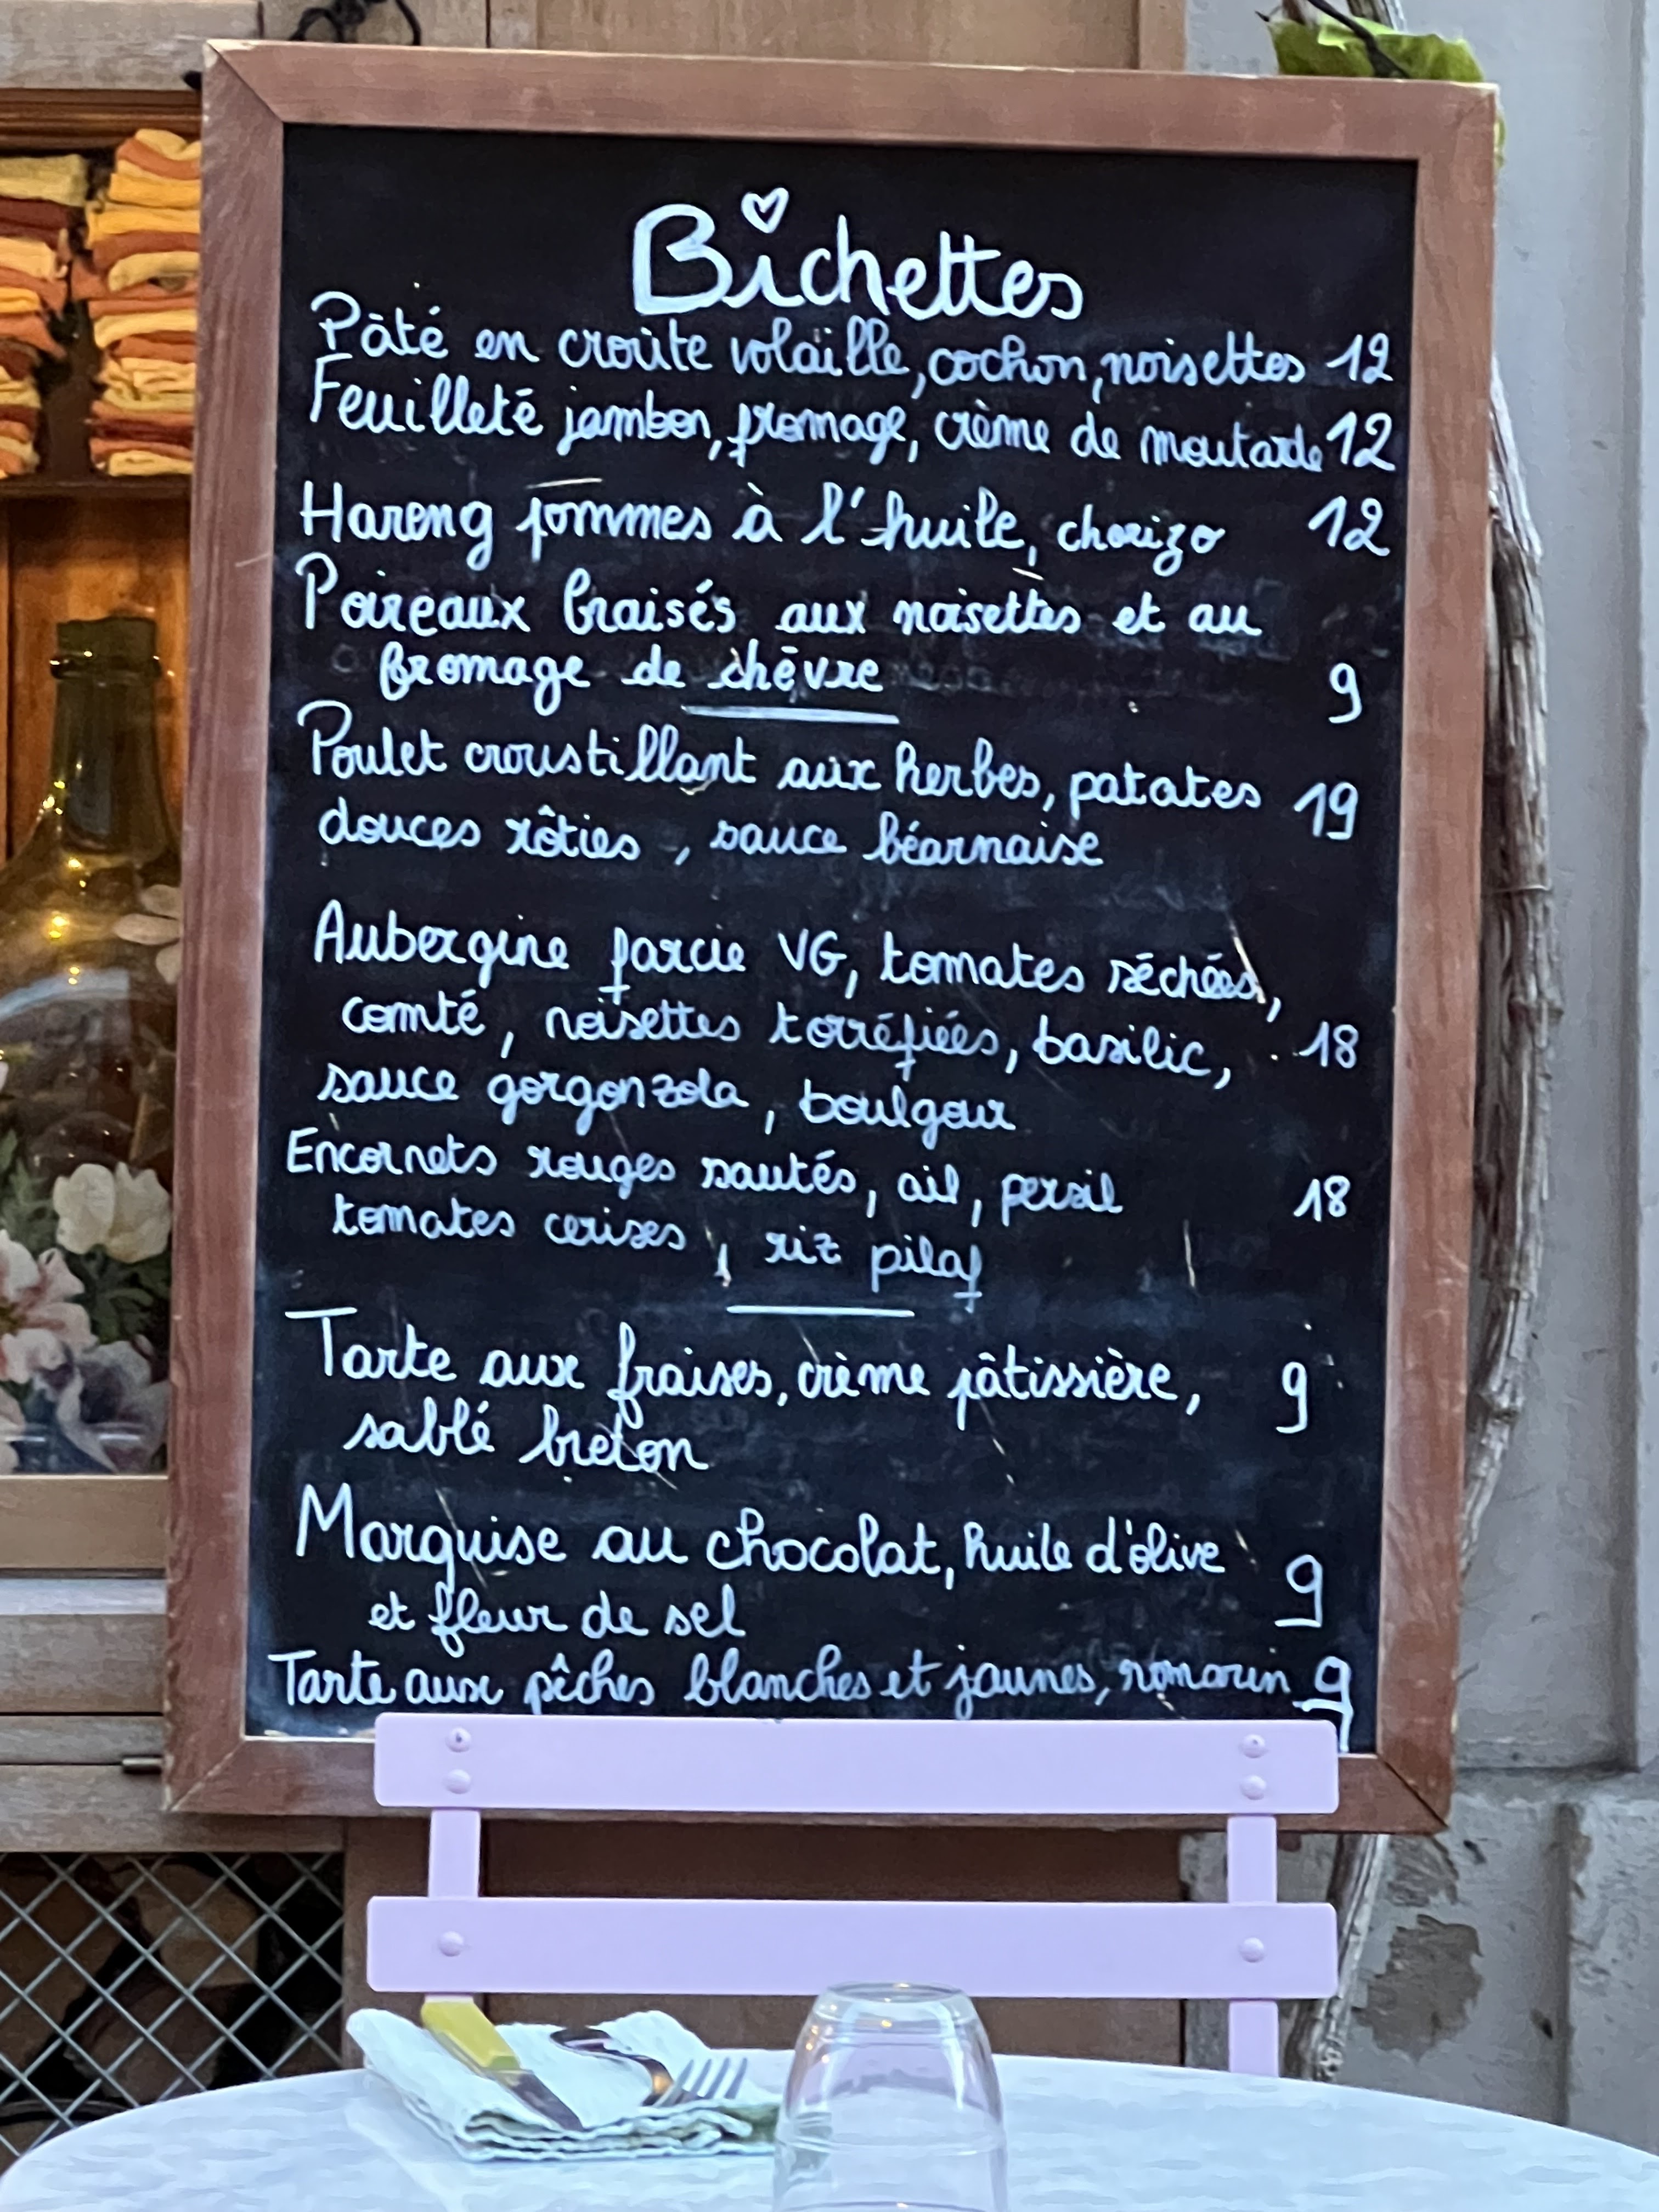 Bichettes
Pâté en croûte volaille, cochon, noisettes 12
Feuilleté jambon, fromage, crème de moutarde 12
Hareng pommes à l'huile, chorizo 12
Poireaux braisés aux noisettes et au
fromage de chèvre 9
Poulet croustillant aux herbes, patates 19
douces rôties, sauce béarnaise
Aubergine farcie VG, tomates séchées,
comté, noisettes torréfiées, basilic, 18
sauce gorgonzola, boulgour
Encornets rouges sautés, ail, persil 18
tomates cerises, riz pilaf
Tarte aux fraises, crème pâtissière, 9
sablé breton
Marquise au chocolat, huile d'olive 9
et fleur de sel
Tarte aux pêches blanches et jaunes, romarin 9